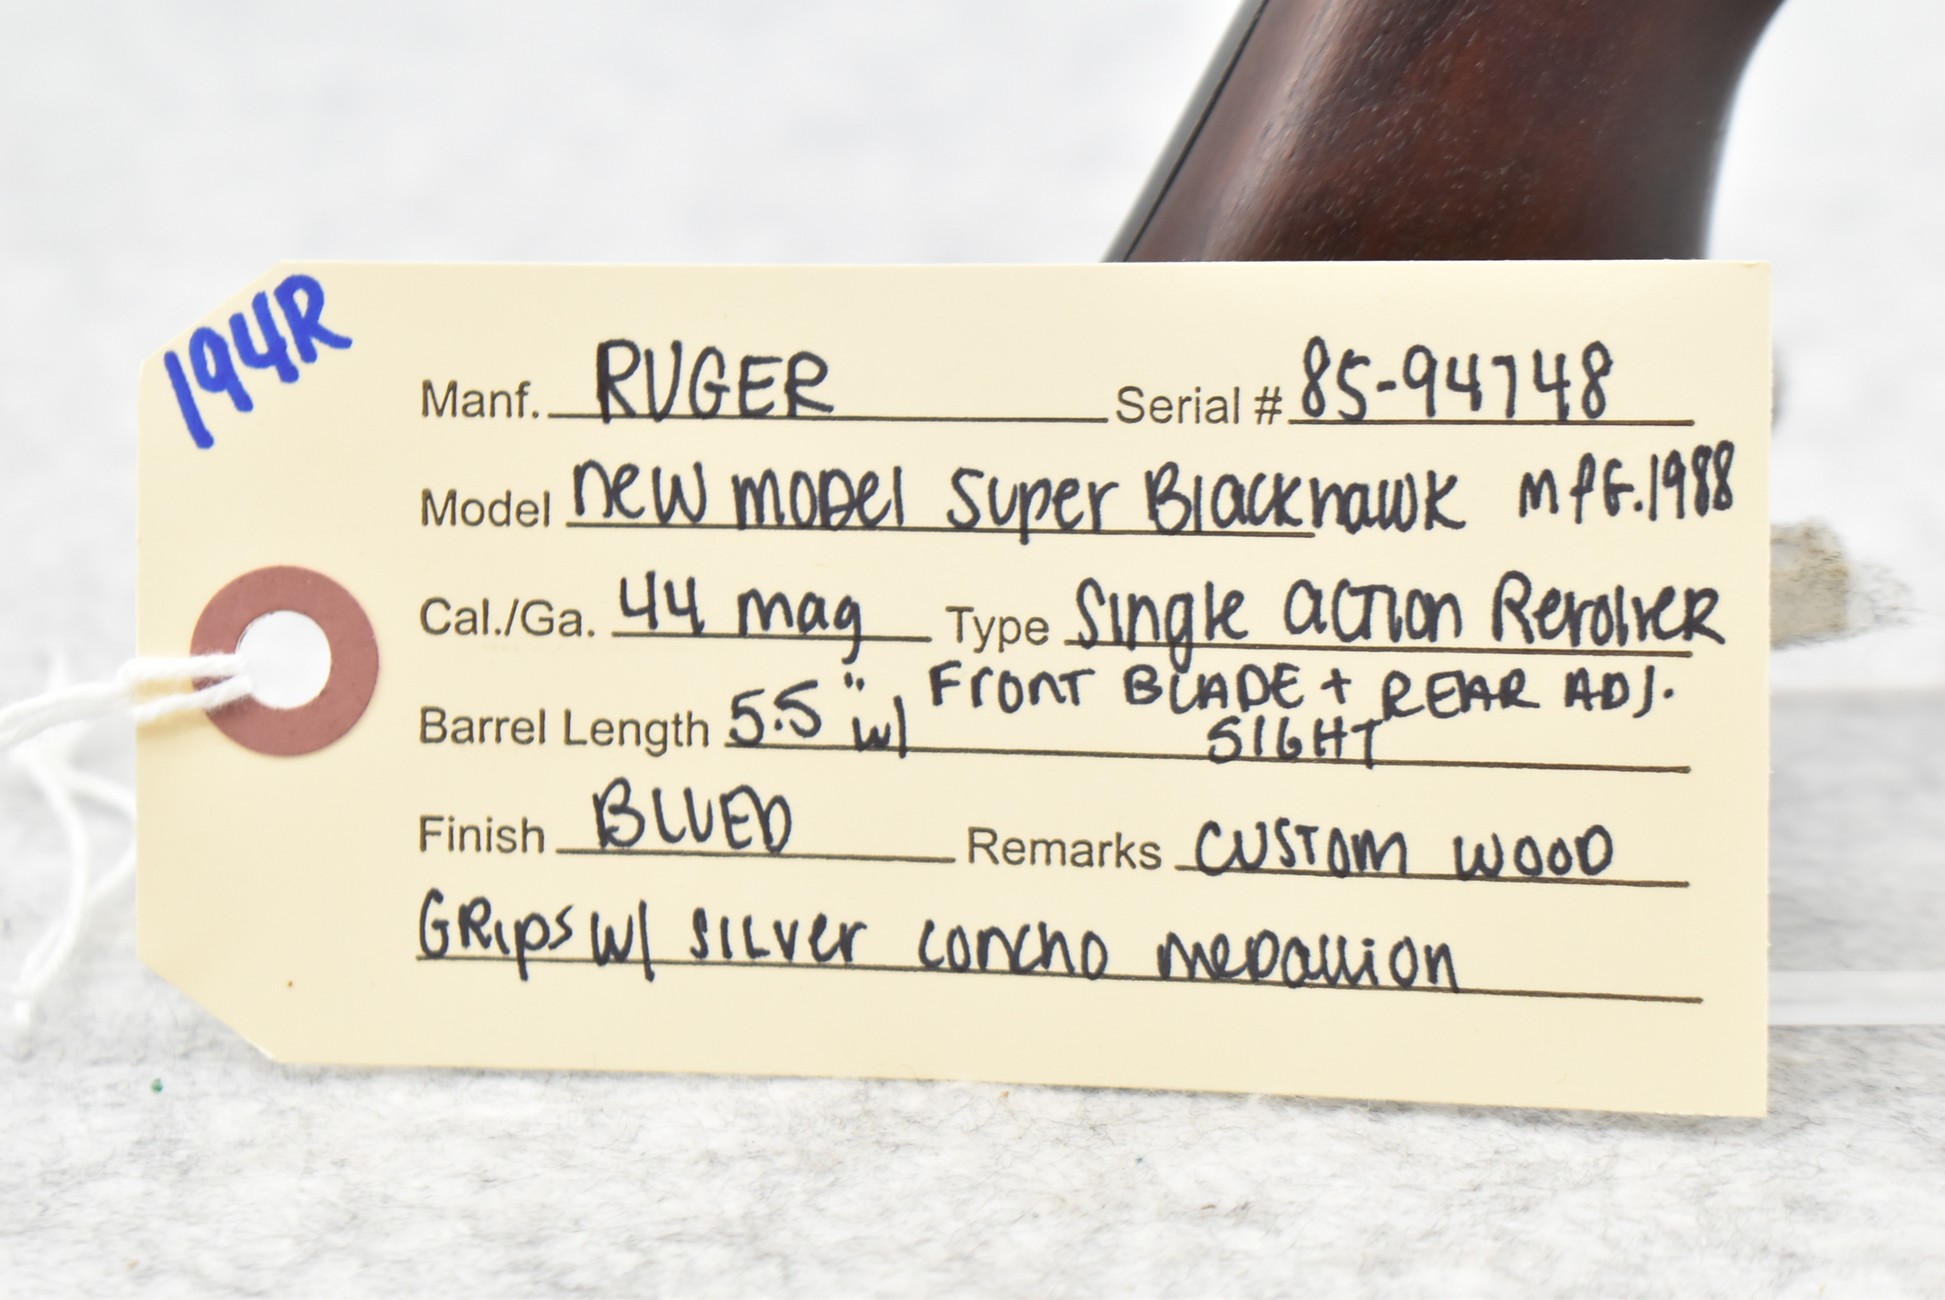 194R
Manf. RUGER Serial # 85-94748
Model new model super Blackhawk mfG.1988
Cal./Ga. 44 mag Type Single action Revolver
Barrel Length 5.5" w/ Front BLADE + REAR ADJ.
SIGHT
Finish BLUED Remarks custom wood
GRips w/ silver concho medallion